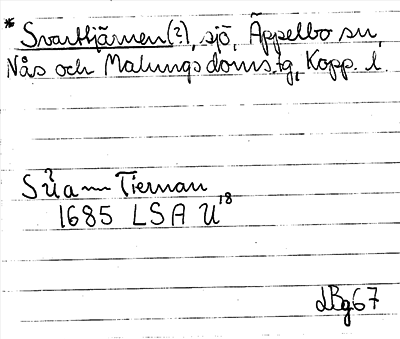 * Svarttjärnen (2), sjö, Äppelbo sn,
Nås och Malungs doms.tg, Kopp. l.
Sůa~ Tiernan
1685 LSA U18
dBg67